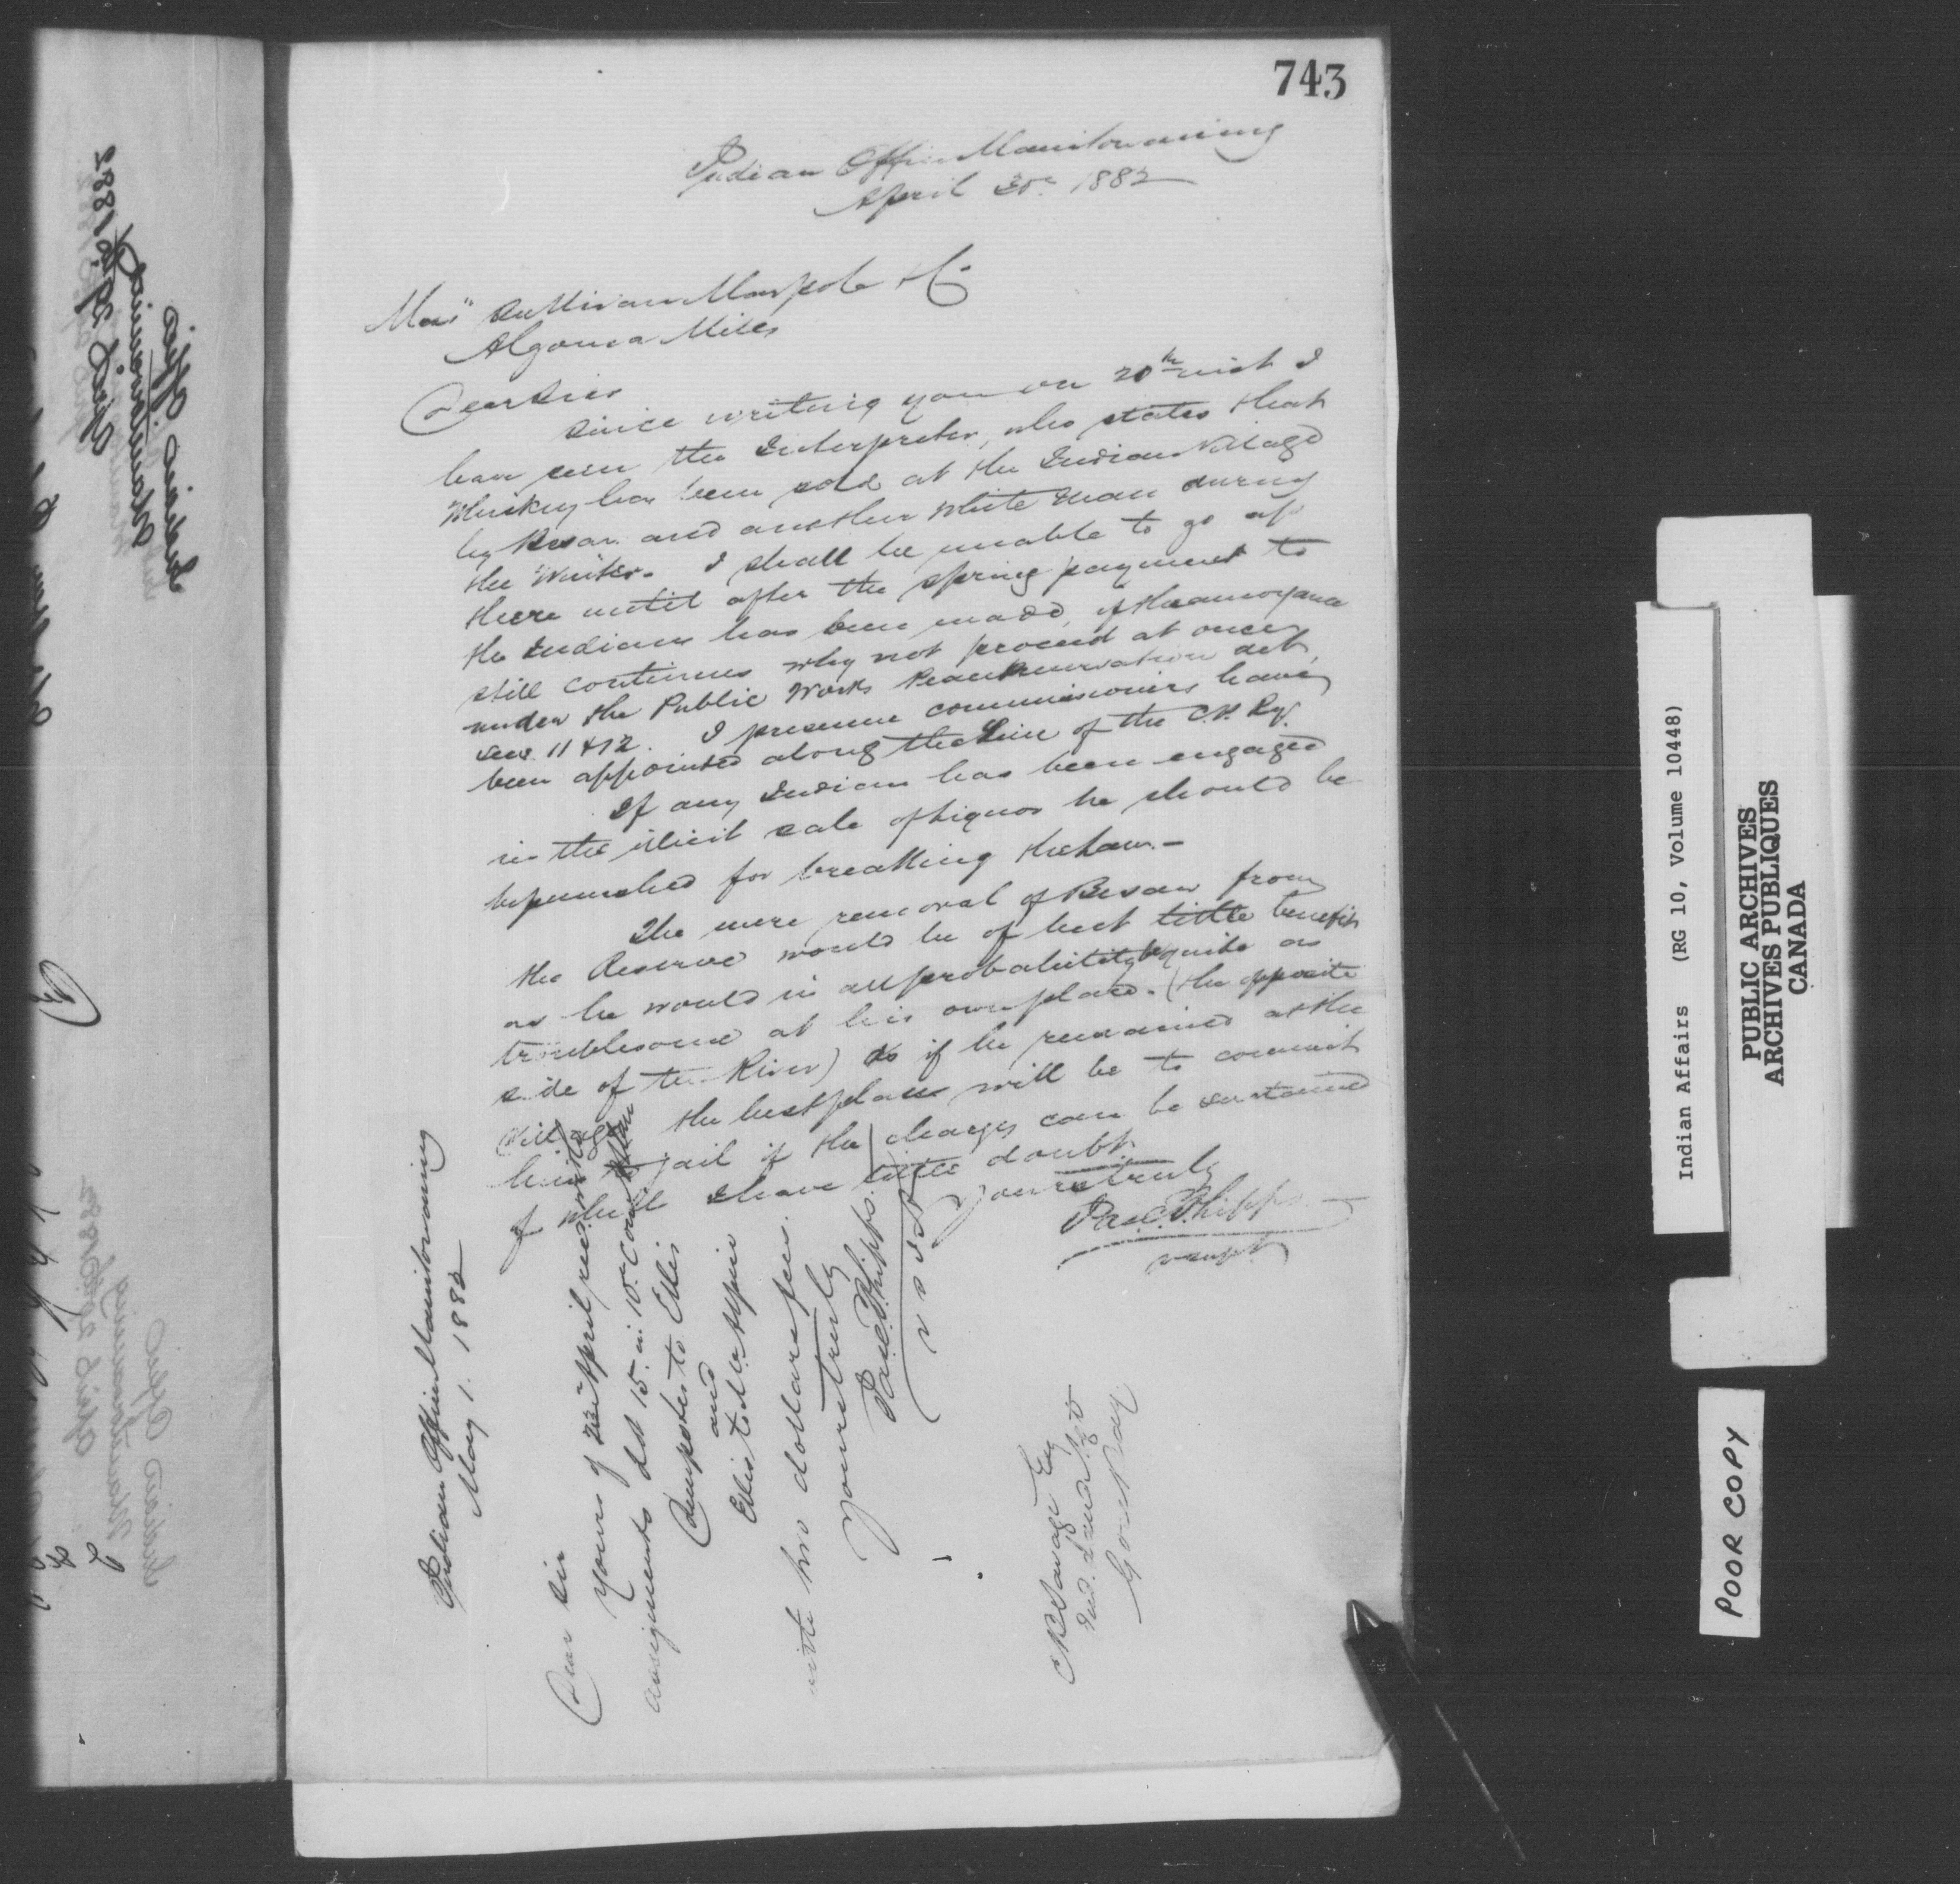 743
Indian Office Manitowaning
April 30th 1882
Messrs Sullivan Marpole & Co
Algoma Mills
Dear Sirs
Since writing you on 20th inst I
have seen the Interpreter, who states that
Whiskey has been sold at the Indian Village
by Besaw and another White Man during
the Winter. I shall be unable to go up
there until after the spring payment to
the Indians has been made, if the annoyance
still continues why not proceed at once
under the Public Works Peace Preservation Act,
secs. 11 & 12. I presume commissioners having
been appointed along the Line of the C.P. Ry.
If any Indian has been engaged
in the illicit sale of Liquor he should be
be punished for breaking the Law.-
The mere removal of Besaw from
the Reserve would be of but little benefit
as he would in all probability be quite as
troublesome at his own place. (the opposite
side of the River) as if he remained at the
Village the best place will be to commit
him to jail if the charges can be sustained
of which I have little doubt.
Yours truly
Jas. C. Phipps
V Supt
Indian Office Manitowaning
May 1. 1882
Dear Sir
Yours of 22d April recd. with
assignments Lot 15 in 10th Con
Dempster to Ellis
and
Ellis to
with two dollars fees.
Yours truly
Jas. C. Phipps
V S
B Savage Esq
Ind. Land Agt
Gore Bay
Indian Affairs (RG 10, Volume 10448)
PUBLIC ARCHIVES
ARCHIVES PUBLIQUES
CANADA
POOR COPY